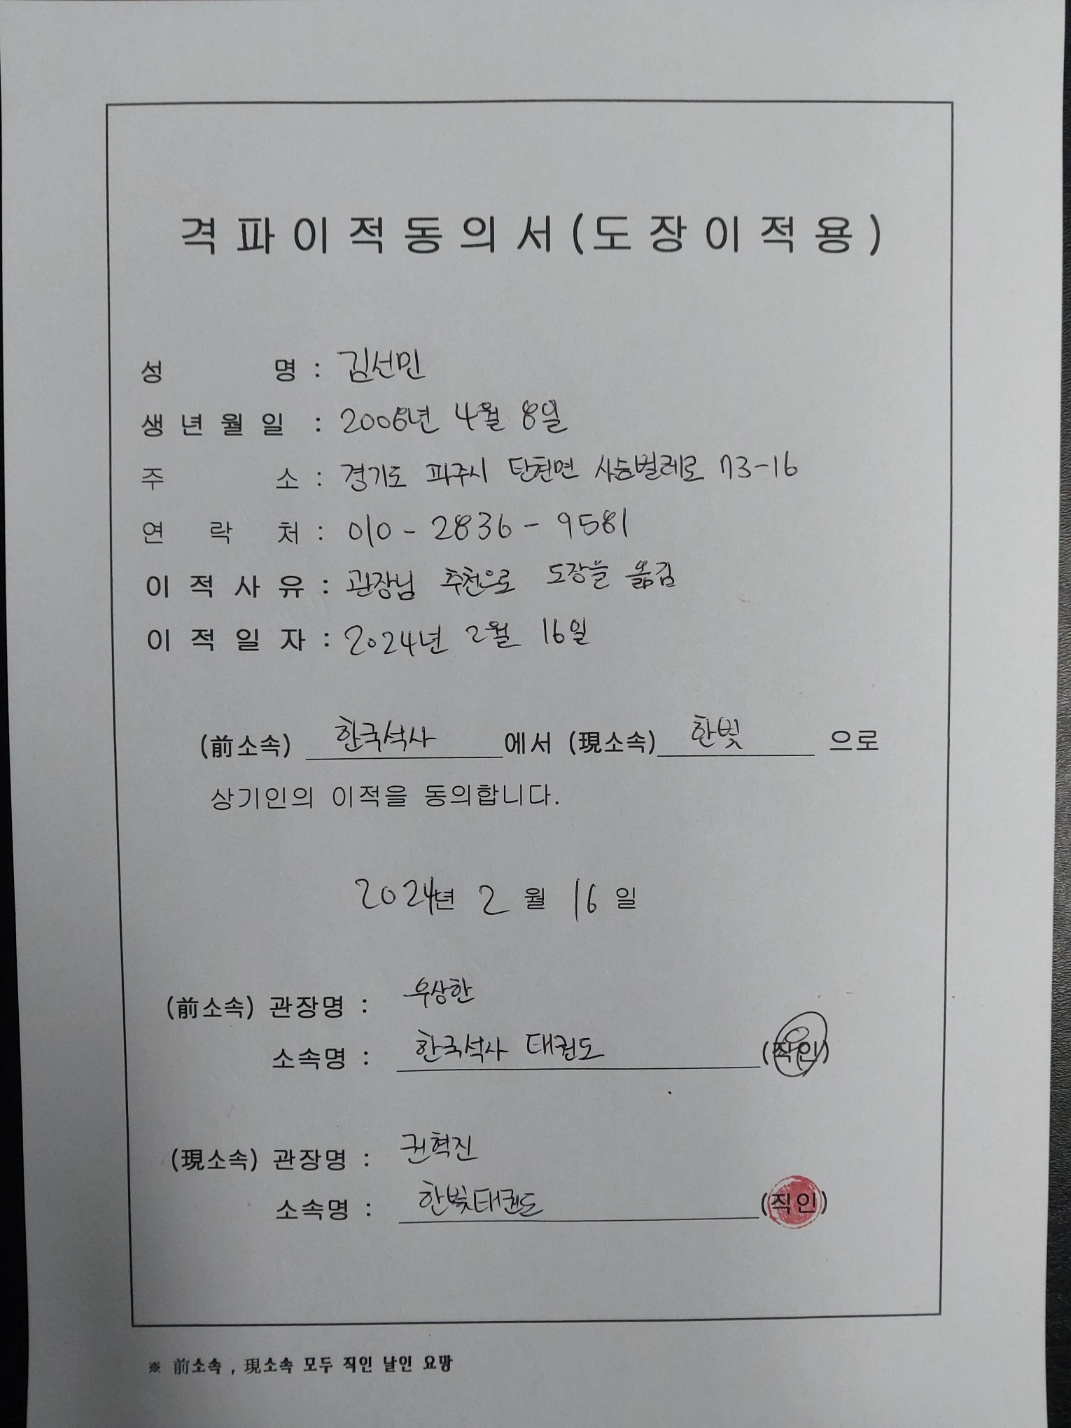 격파이적동의서(도장이적용)
성 명 : 김선민
생년월일 : 2006년 4월 8일
주 소 : 경기도 파주시 탄현면 사슴벌레로 73-16
연 락 처 : 010-2836-9581
이적사유 : 관장님 추천으로 도장을 옮김
이적일자 : 2024년 2월 16일
(前소속) 한국석사 에서 (現소속) 한빛 으로
상기인의 이적을 동의합니다.
2024년 2 월 16 일
(前소속) 관장명 : 우상한
소속명 : 한국석사 태권도 (직인)
(現소속) 관장명 : 권혁진
소속명 : 한빛태권도 (직인)
※ 前소속 , 現소속 모두 직인 날인 요망